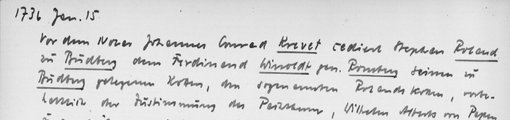 1736 Jan. 15
Vor dem Notar Johannes Conrad Krevet cediert Stephan Roland
zu Budberg dem Ferdinand Winoldt gen. Romberg seinen zu
Budberg gelegenen Kotten, den sogenannten Rolandskotten, vorbe-
haltlich der Zustimmung des Pachtherrn, Wilhelm Alberts von Papen